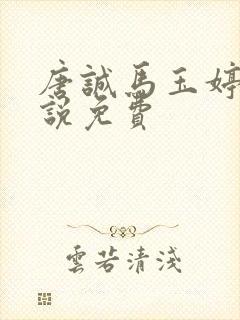 唐誠馬玉婷
說免費
雲若清淺